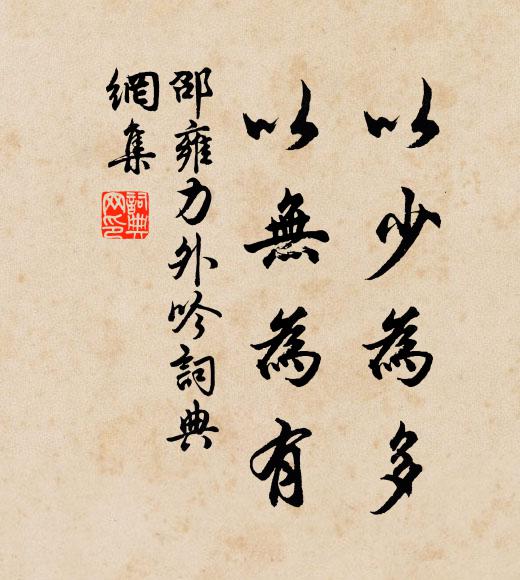 以少為多
以無為有
邵雍力外吟詞典
網集
詞典
网印